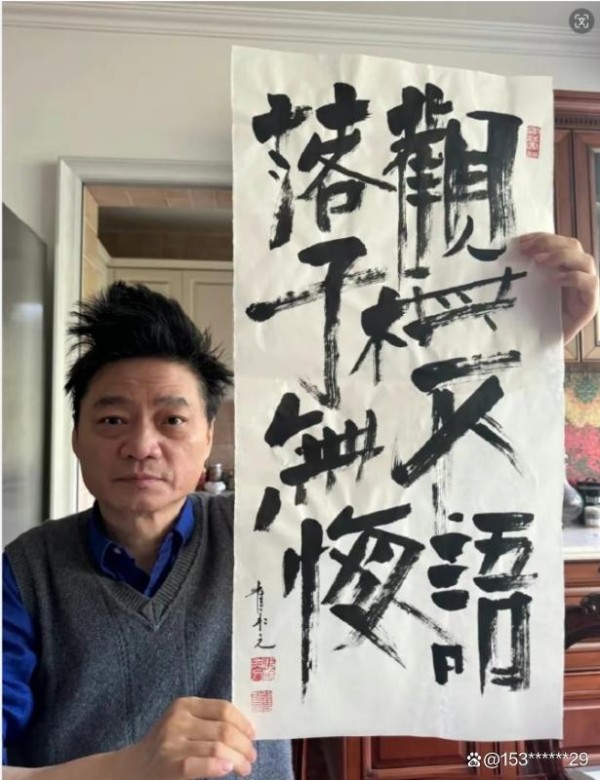 觀棋不語
落子無悔
崔永元
@153******29